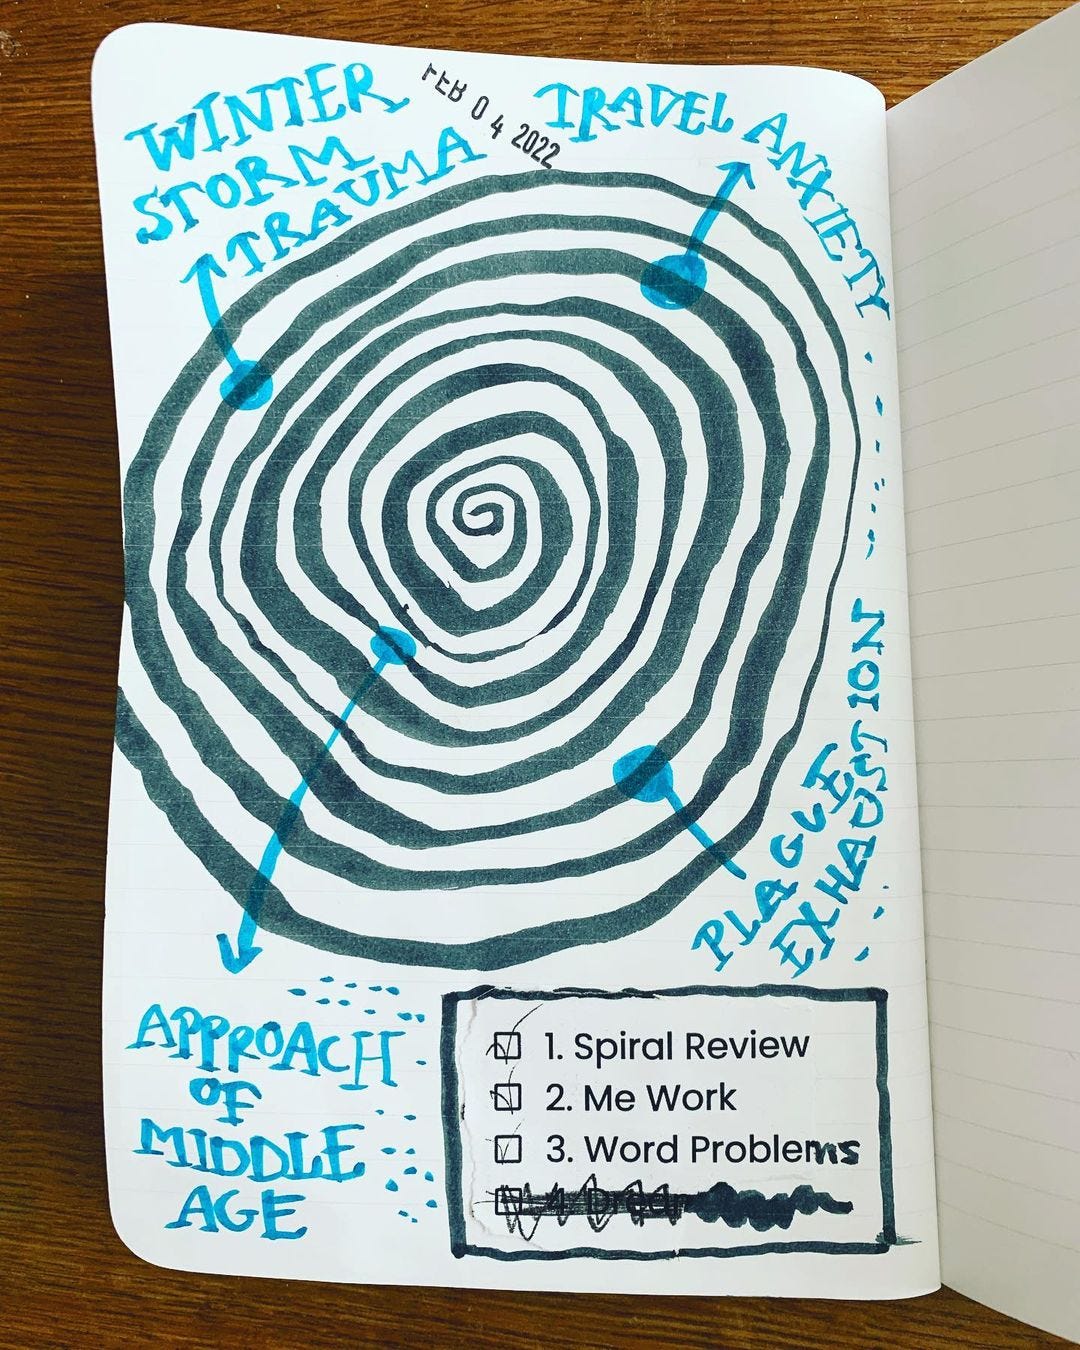 WINTER
STORM
TRAUMA
FEB 04 2022
TRAVEL ANXIETY
PLAGUE
EXHAUSTION
APPROACH
OF
MIDDLE
AGE
1. Spiral Review
2. Me Work
3. Word Problems
4.